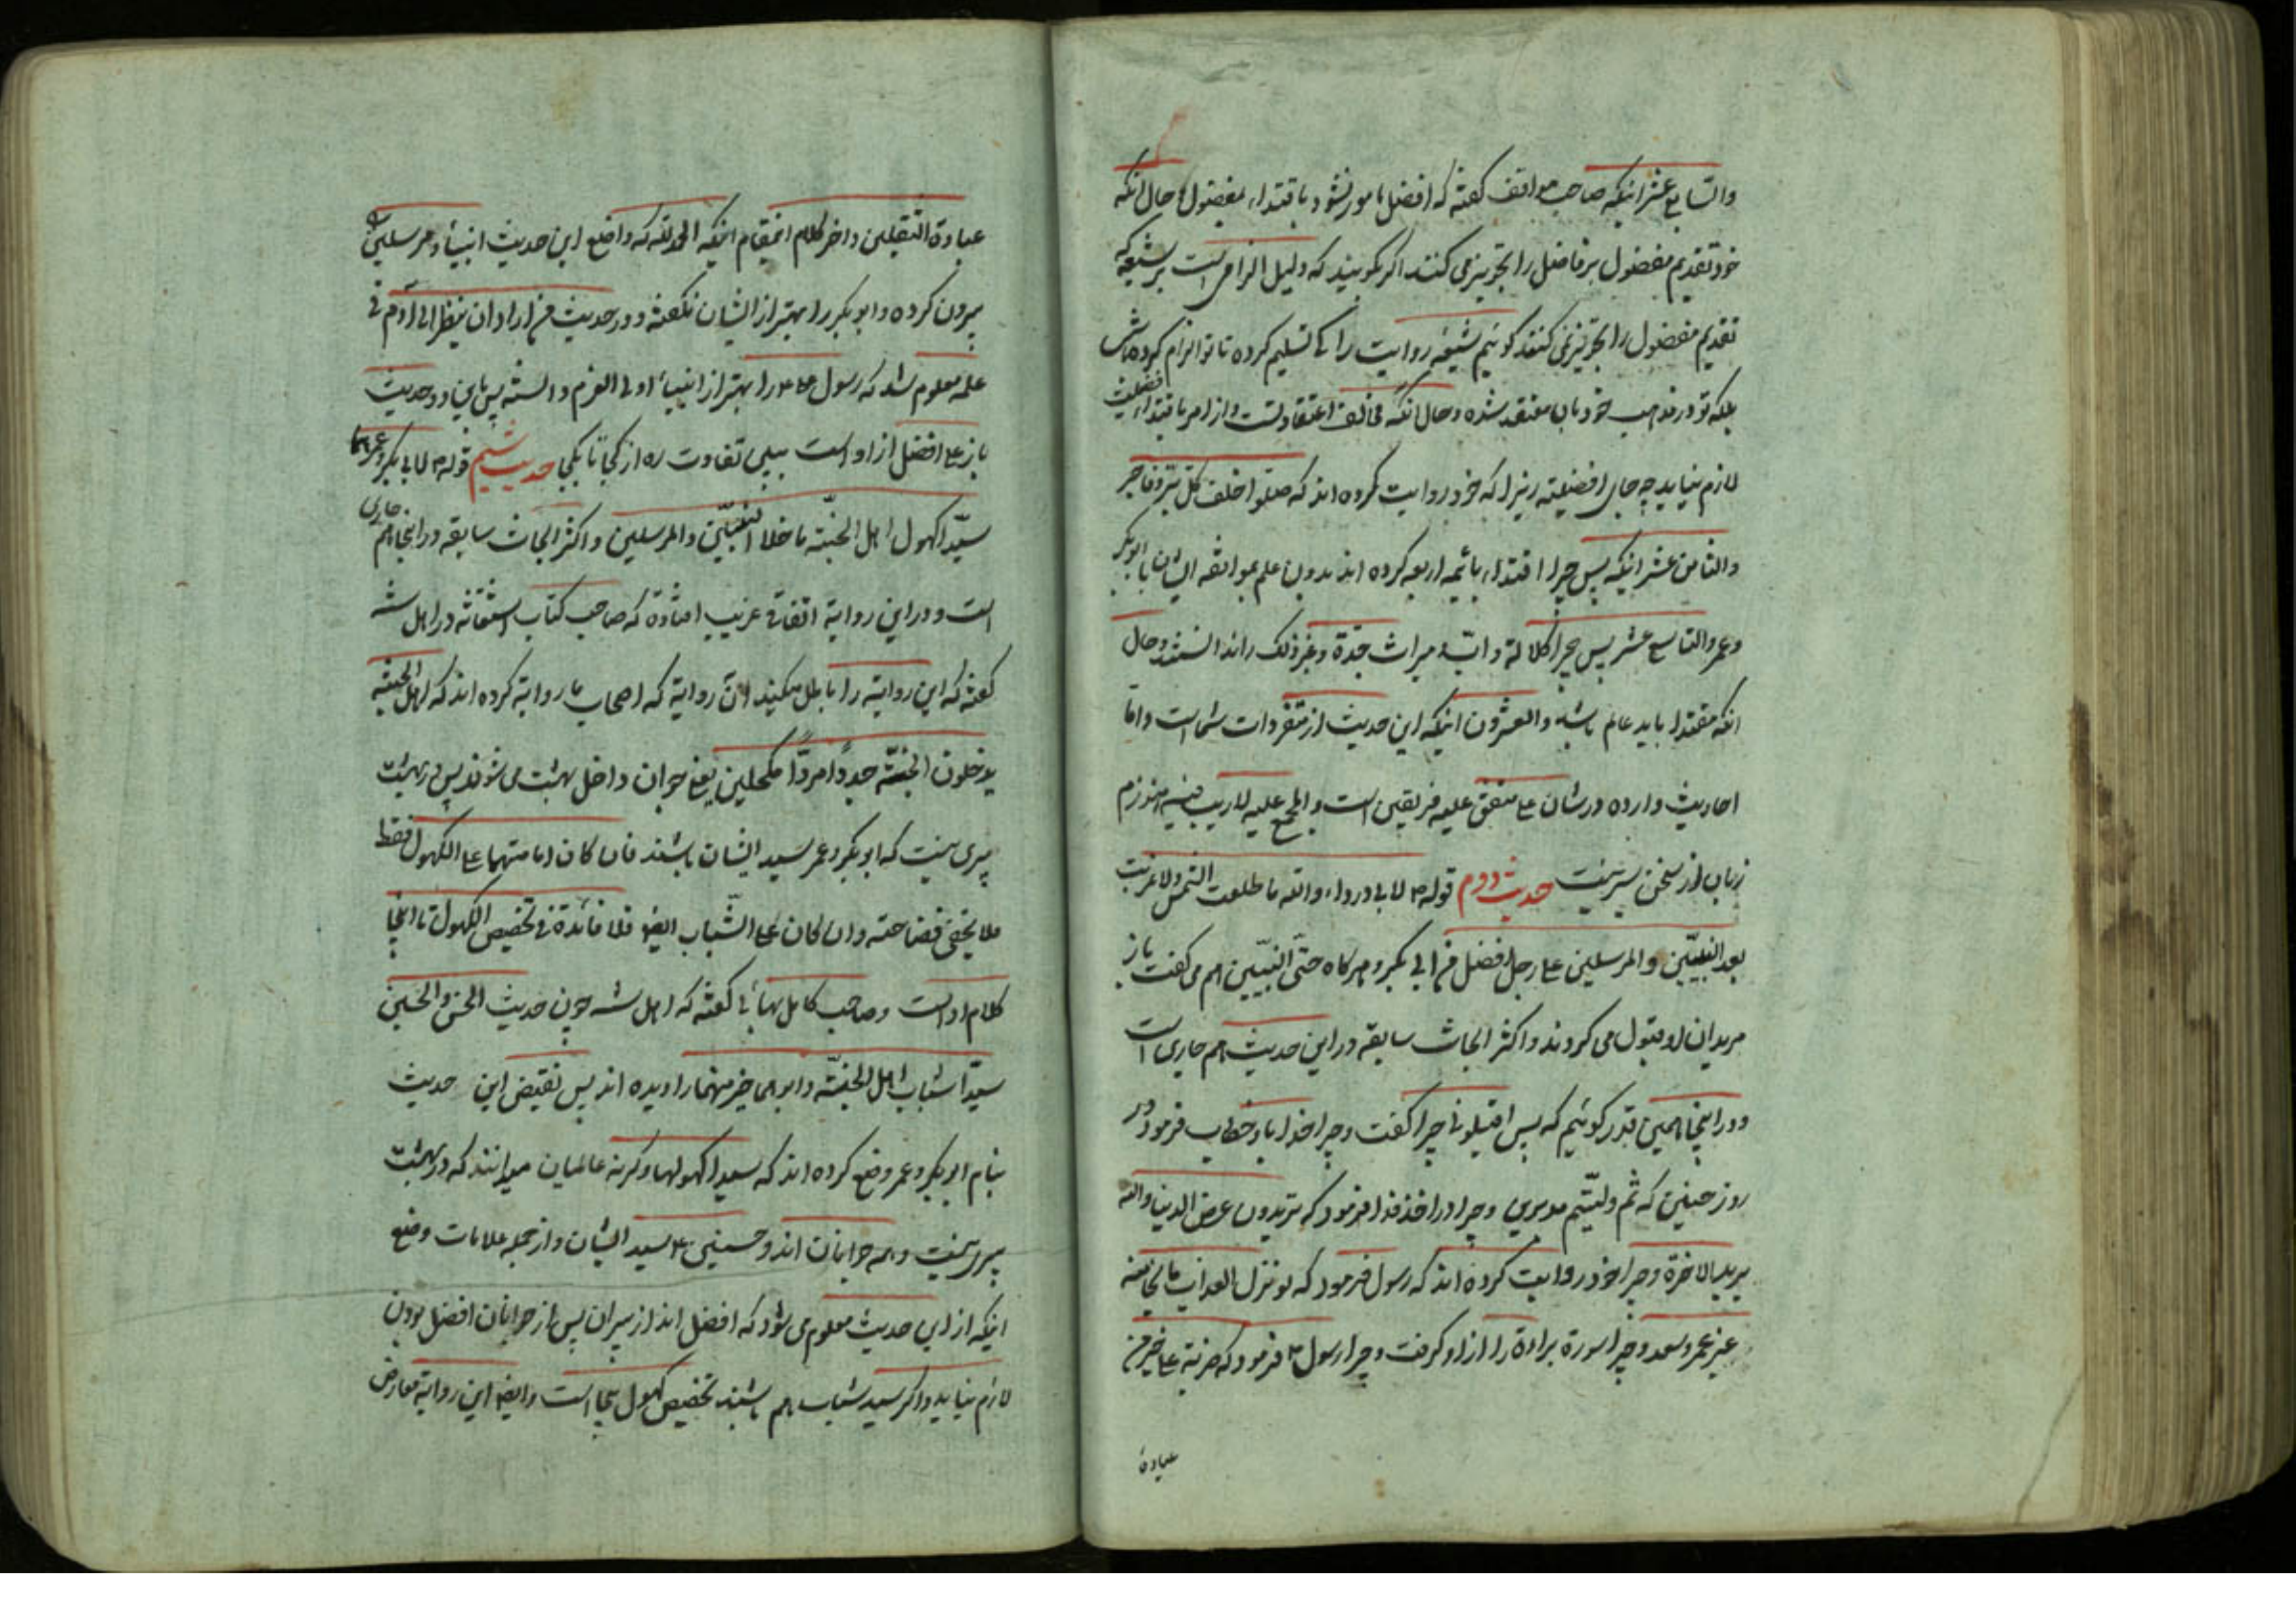 والسابع عشر اینکه صاحب مواقف کفته که افضل مامور نشود باقتداء مفضول و حال آنکه
خود تقدیم مفضول بر فاضل را تجویز می کنند اکر بکویند که دلیل الزامی است بر شیعه که
تقدیم مفضول را تجویز نمی کنند کوئیم شیعه روایت را کی تسلیم کرده تا تو الزام کرده باشی
بلکه تو در مذهب خود بان معتقد شده و حال آنکه مخالف اعتقاد تست و از امر باقتداء افضلیت
لازم نیاید چه جای افضلیته زیرا که خود روایت کرده اند که صلوا خلف کل بر و فاجر
والثامن عشر اینکه پس چرا اقتداء بائمه اربعه کرده اند بدون علم بموافقه ایشان با ابوبکر
و عمر والتاسع عشر پس چرا کلالة و ابّ و میراث جدّة و غیر ذلک را ندانستند و حال
آنکه مقتدا باید عالم باشد والعشرون اینکه این حدیث از متفردات شما است و اما
احادیث وارده در شان علی متفق علیه فریقین است والمجمع علیه لا ریب فیه هنوزم
زبان از سخن سیر نیست حدیث دوم قوله ص لابی درداء والله ما طلعت الشمس ولا غربت
بعد النبیّین والمرسلین علی رجل افضل من ابی بکر و هرکاه حتّی النبیّین هم می کفت باز
مریدان او قبول می کردند و اکثر ابحاث سابقه در این حدیث هم جاری است
و در اینجا همین قدر کوئیم که پس اقیلونی چرا کفت و چرا خدا باو خطاب فرمود در
روز حنین که ثم ولّیتم مدبرین و چرا در اخذ فدا فرمود که تریدون عرض الدنیا والله
یرید الاخرة و چرا خود روایت کرده اند که رسول فرمود که لو نزل العذاب ما نجا منه
غیر عمر و سعد و چرا سوره براءة را از او کرفت و چرا رسول ص فرمود که ضربة علی خیر من
عبادة
عبادة الثقلین و اخر کلام انمقام اینکه الحمد لله که واضع این حدیث انبیاء و مرسلین را
بیرون کرده و ابوبکر را بهتر از ایشان نکفته و در حدیث من اراد ان ینظر الی آدم فی
علمه معلوم شد که رسول ص علی ع را بهتر از انبیاء اولی العزم دانسته پس باین دو حدیث
باز علی افضل از او است ببین تفاوت ره از کجا تا بکجا حدیث سیم قوله ص لابی بکر و عمر هما
سیّدا کهول اهل الجنّة ما خلا النبیّین والمرسلین و اکثر ابحاث سابقه در اینجا هم جاری
است و در این روایة اتفاقی غریب افتاده که صاحب کتاب استغاثه در اهل سنة
کفته که این روایة را باطل میکند آن روایة که اصحاب ما روایة کرده اند که اهل الجنة
یدخلون الجنّة جرداً مرداً مکحلین یعنی جوان داخل بهشت می شوند پس در بهشت
پیری نیست که ابوبکر و عمر سید ایشان باشند فان کان امامتهما علی الکهول فقط
فلا یخفی فضاحته وان کان علی الشّباب ایضا فلا فائدة فی تخصیص الکهول تا اینجا
کلام او است و صاحب کامل بهائی کفته که اهل سنة چون حدیث الحسن والحسین
سیّدا شباب اهل الجنّة وابوهما خیر منهما را دیده اند پس نقیض این حدیث
بنام ابوبکر و عمر وضع کرده اند که سیدا کهولها و کرنه عالمیان میدانند که در بهشت
پیر نیست و همه جوانان اند و حسنین ع سید ایشان و از جمله علامات وضع
اینکه از این حدیث معلوم می شود که افضل اند از پیران پس از جوانان افضل بودن
لازم نیاید و اکر سید شباب هم باشند تخصیص کهول بیجا است و ایضا این روایة معارض